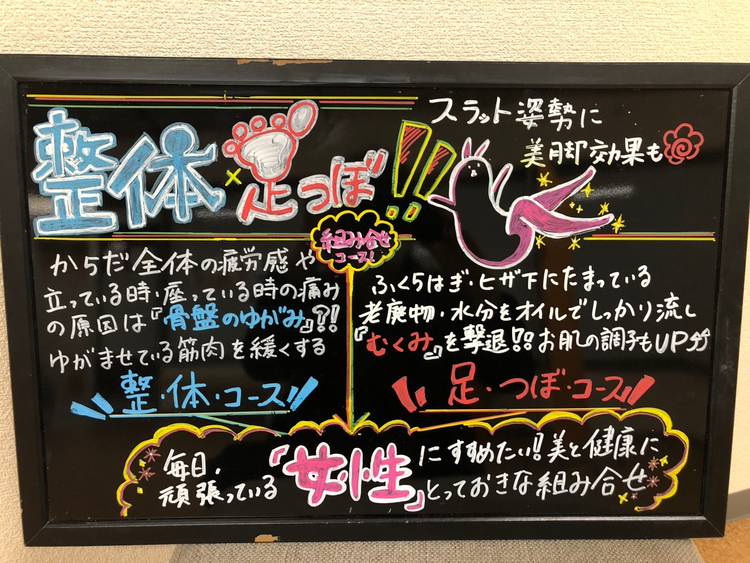 整体×足つぼ!!
スラット姿勢に
美脚効果も
組み合せ
コース!
からだ全体の疲労感や
立っている時・座っている時の痛み
の原因は『骨盤のゆがみ』?!
ゆがませている筋肉を緩くする
整・体・コース
ふくらはぎ・ヒザ下にたまっている
老廃物・水分をオイルでしっかり流し
『むくみ』を撃退!!お肌の調子もUP
足・つぼ・コース
毎日、
頑張っている
「女性」
にすすめたい!美と健康に
とっておきな組み合せ